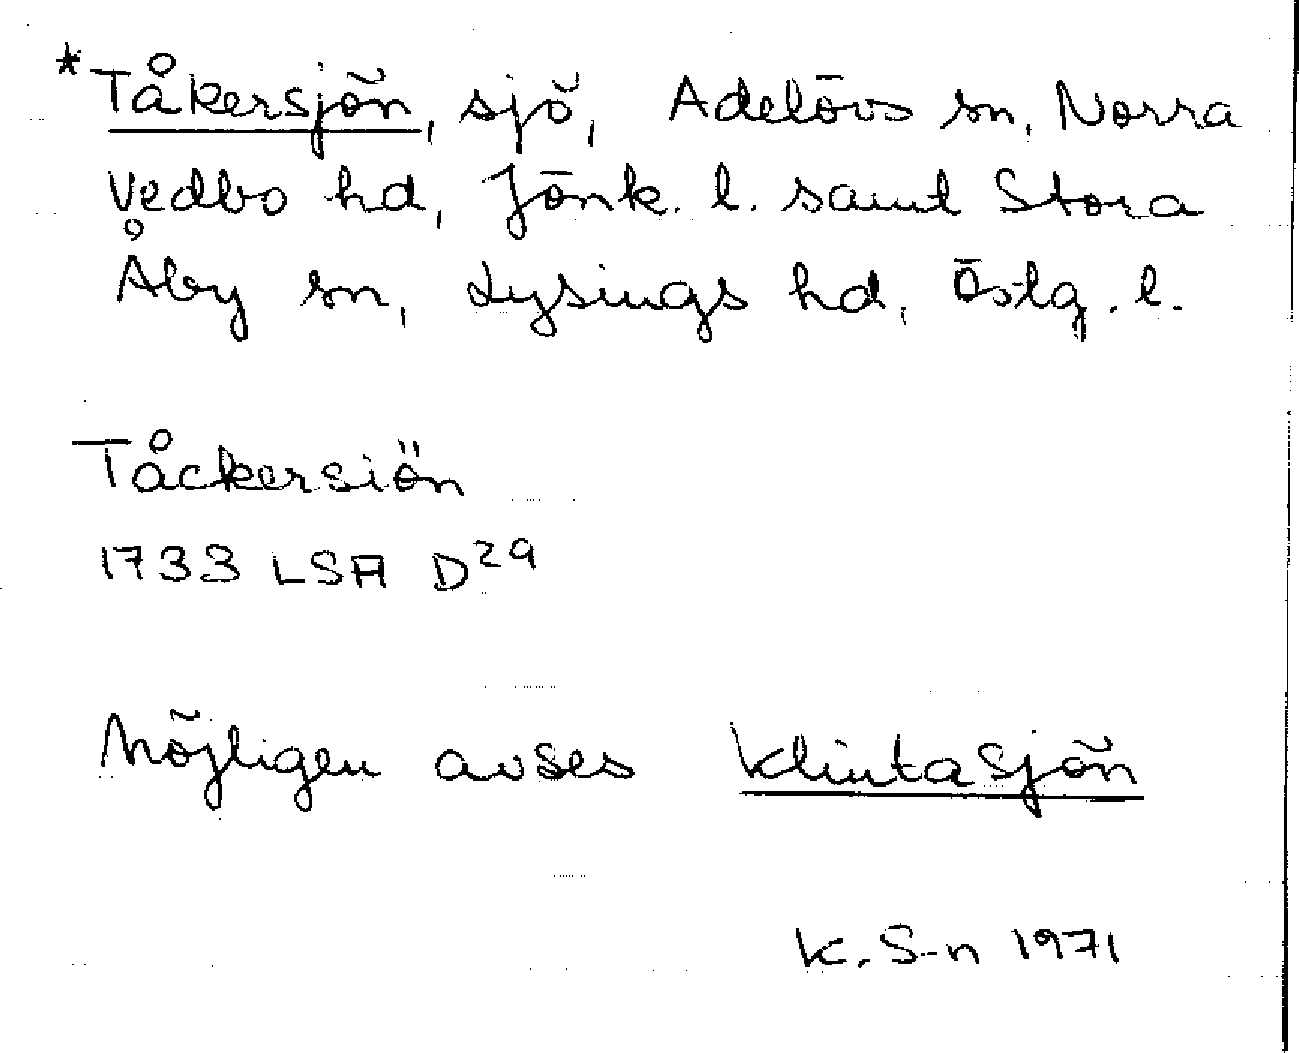 *Tåkersjön, sjö, Adelövs sn, Norra
Vedbo hd, Jönk. l. samt Stora
Åby sn, Lysings hd, Östg. l.
Tåckersiön
1733 LSA D29
Möjligen avses Klintasjön
K. S-n 1971